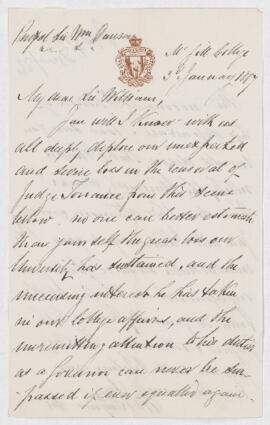 Principal Sir Wm Dawson
McGill College
3d January 1887
My dear Sir William,
You will I know with us
all deeply deplore our unexpected
and severe loss in the removal of
Judge Torrance from this scene
below no one can better estimate
than yourself the great loss our
University has sustained, and the
unceasing interest he has taken
in our College affairs, and the
unremitting attention to his duties
as a Governor can never be sur-
passed if ever equalled again.